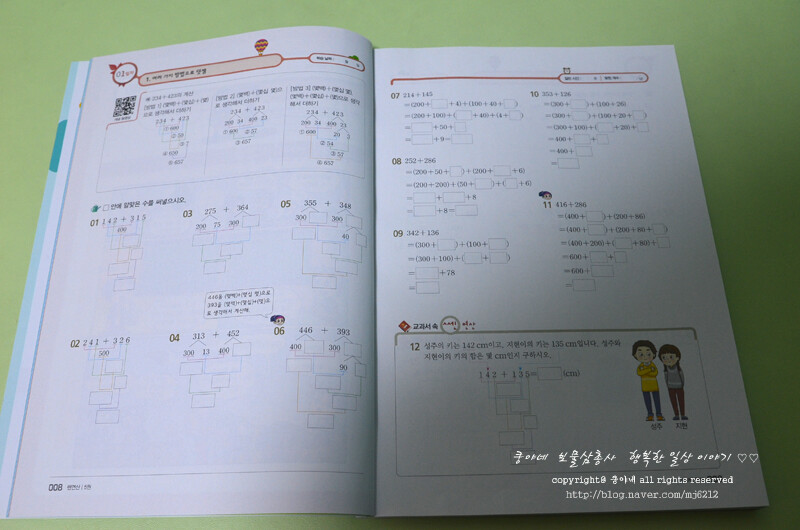 01
1. 여러 가지 방법으로 덧셈
※ 234+423의 계산
[방법 1] (몇백)+(몇십)+(몇)
으로 생각해서 더하기
234 + 423
① 600
② 50
③ 7
④ 650
⑤ 657
234 + 423
200 34 400 23
① 600 ② 57
③ 657
해서 더하기
234 + 423
200 34 400 23
① 600
20 3
② 54
③ 57
④ 657
□ 안에 알맞은 수를 써넣으시오.
01 142 + 315
600
03 275 + 364
200 75 300
05 355 + 348
300 300
40
446을 (몇백)+(몇십 몇)으로
393을 (몇백)+(몇십)+(몇)으
로 생각하여 계산해.
02 241 + 326
500
04 313 + 452
300 13 400
06 446 + 393
400 300
90
008
07 214+145
=(200+□+4)+(100+40+□)
=(200+100)+(□+40)+(4+□)
=□+50+□
=□+9=□
08 252+286
=(200+50+□)+(200+□+6)
=(200+200)+(50+□)+(□+6)
=□+□+8
=□+8=□
09 342+136
=(300+□)+(100+□)
=(300+100)+(□+□)
=□+78
=□
10 353+126
=(300+□)+(100+26)
=(300+□)+(100+20+□)
=(300+100)+(□+20)+□
=400+□+□
=400+□
=□
11 416+286
=(400+□)+(200+86)
=(400+□)+(200+80+□)
=(400+200)+(□+80)+□
=600+□+□
=600+□
=□
교과서 속
12 성주의 키는 142 cm이고, 지현이의 키는 135 cm입니다. 성주와
지현이의 키의 합은 몇 cm인지 구하시오.
142 + 135=□(cm)
성주 지현
쿵야네 보물삼총사 행복한 일상 이야기 ♡♡
copyright@ 쿵야네 all rights reserved
http://blog.naver.com/mj6212